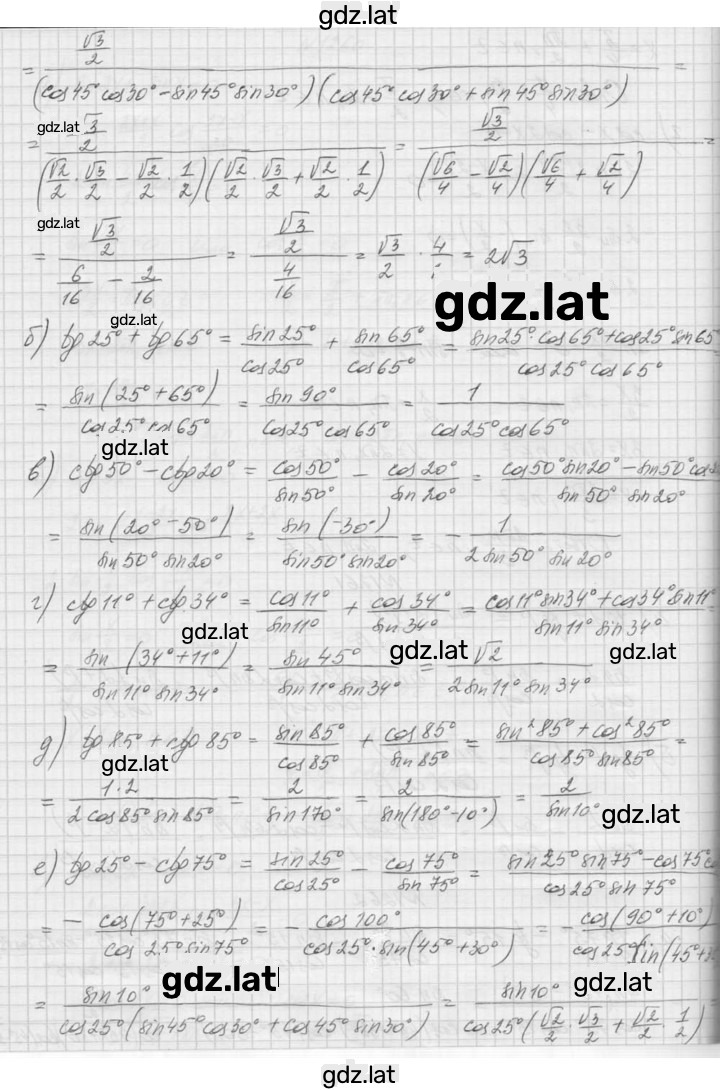 gdz.lat
= (√3/2)/((cos45°cos30° - sin45°sin30°)(cos45°cos30° + sin45°sin30°)) =
gdz.lat
= (√3/2)/((√2/2 · √3/2 - √2/2 · 1/2)(√2/2 · √3/2 + √2/2 · 1/2)) = (√3/2)/((√6/4 - √2/4)(√6/4 + √2/4)) =
gdz.lat
= (√3/2)/(6/16 - 2/16) = (√3/2)/(4/16) = √3/2 · 4/ = 2√3
gdz.lat
gdz.lat
б) tg25° + tg65° = sin25°/cos25° + sin65°/cos65° = (sin25°·cos65° + cos25°sin65°)/(cos25°cos65°)
= sin(25° + 65°)/(cos25°cos65°) = sin90°/(cos25°cos65°) = 1/(cos25°cos65°)
gdz.lat
в) ctg50° - ctg20° = cos50°/sin50° - cos20°/sin20° = (cos50°sin20° - sin50°cos)/(sin50° sin20°)
= sin(20° - 50°)/(sin50° sin20°) = sin(-30°)/(sin50°sin20°) = - 1/(2sin50° sin20°)
г) ctg11° + ctg34° = cos11°/sin11° + cos34°/sin34° = (cos11°sin34° + cos34°sin11°)/(sin11° sin34°)
gdz.lat gdz.lat gdz.lat
= sin(34° + 11°)/(sin11° sin34°) = sin45°/(sin11° sin34°) = √2/(2sin11° sin34°)
д) tg85° + ctg85° = sin85°/cos85° + cos85°/sin85° = (sin²85° + cos²85°)/(cos85°sin85°) =
gdz.lat
= 1·2/(2cos85°sin85°) = 2/sin170° = 2/sin(180° - 10°) = 2/sin10°
gdz.lat
е) tg25° - ctg75° = sin25°/cos25° - cos75°/sin75° = (sin25°sin75° - cos75°)/(cos25°sin75°)
= - cos(75° + 25°)/(cos25°sin75°) = - cos100°/(cos25°·sin(45° + 30°)) = - cos(90° + 10°)/(cos25°sin(45°+
gdz.lat gdz.lat
= sin10°/(cos25°(sin45°cos30° + cos45°sin30°)) = sin10°/(cos25°(√2/2 · √3/2 + √2/2 · 1/2)) =
gdz.lat